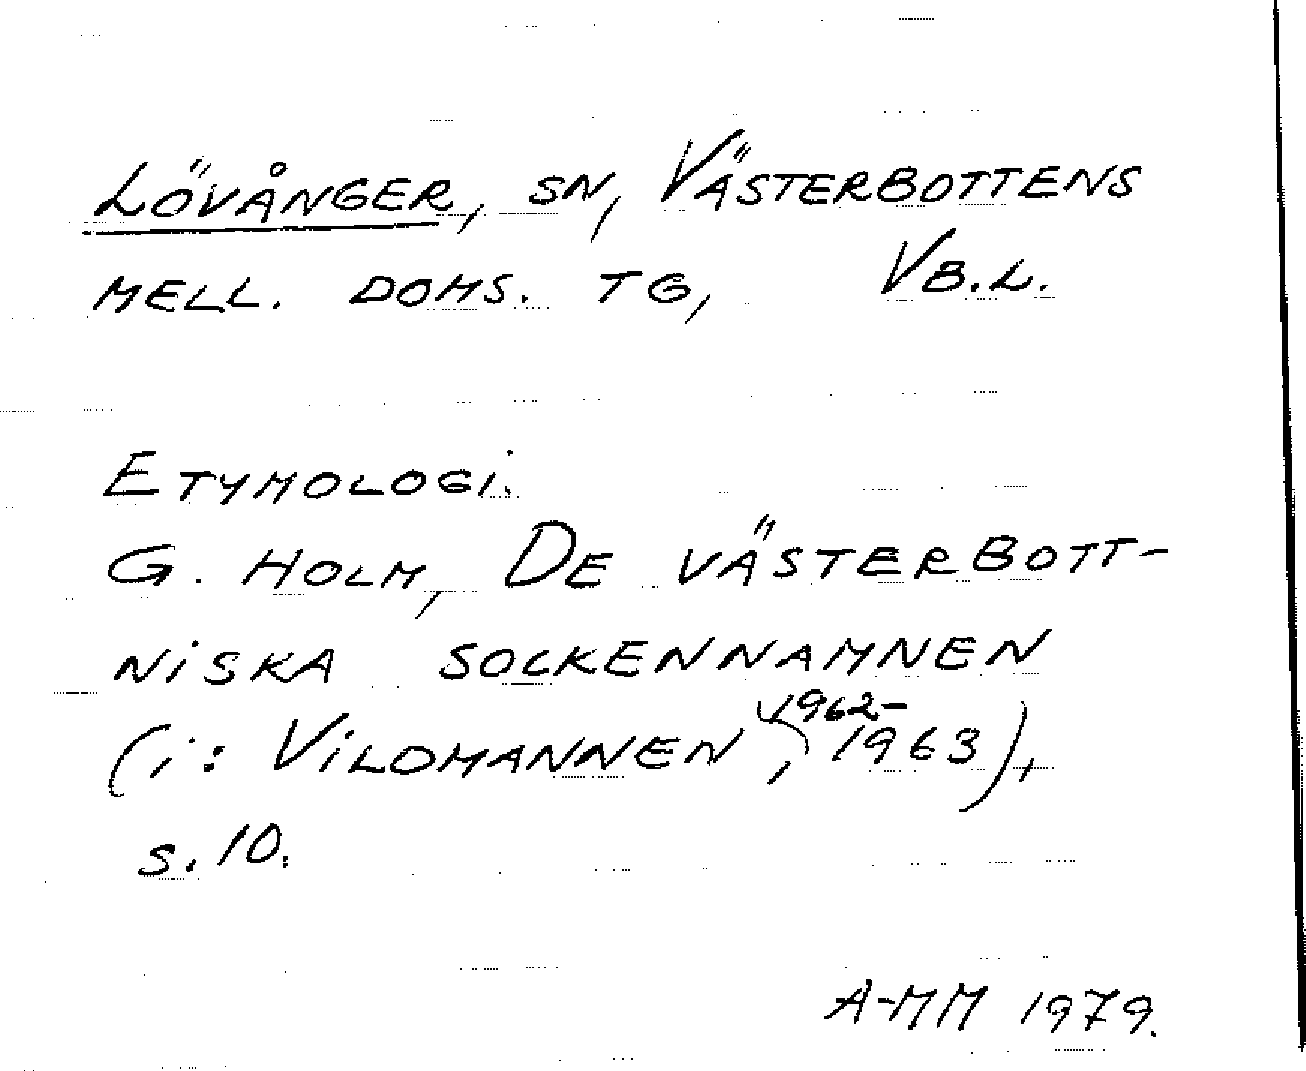 LÖVÅNGER, SN, VÄSTERBOTTENS
MELL. DOMS. TG, VB.L.
ETYMOLOGI.
G. HOLM, DE VÄSTERBOTT-
NISKA SOCKENNAMNEN
(i: VILDMANNEN, 1962-1963),
S. 10.
A-MM 1979.